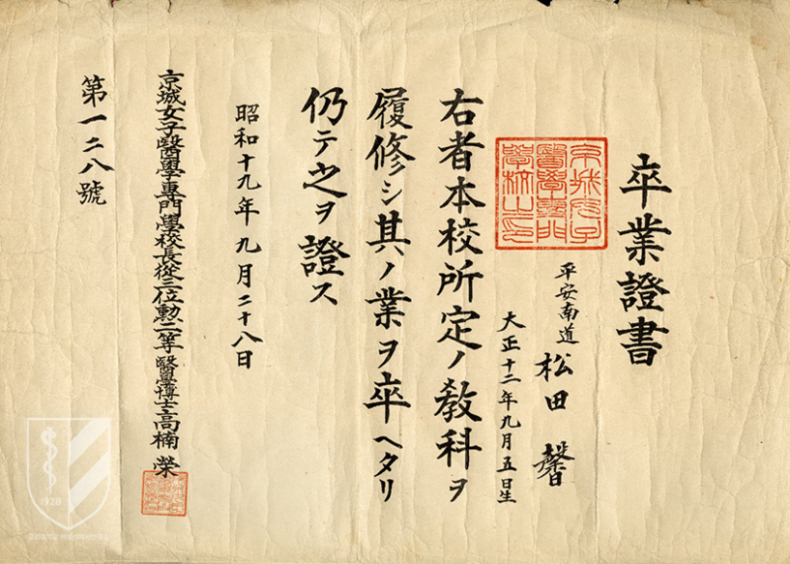 卒業證書
平安南道
松田 馨
大正十二年九月五日生
右者本校所定ノ敎科ヲ
履修シ其ノ業ヲ卒ヘタリ
仍テ之ヲ證ス
昭和十九年九月二十八日
京城女子醫學專門學校長從三位勲二等醫學博士高楠 榮
第一二八號
京城女子
醫學專門
學校之印
1928